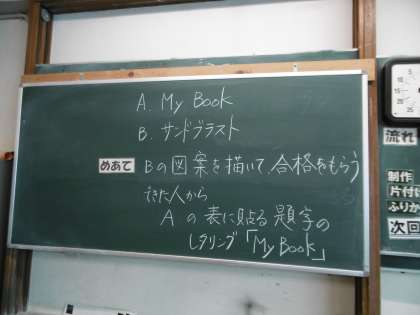 A. My Book
B. サンドブラスト
めあて Bの図案を描いて、合格をもらう
できた人から
Aの表に貼る題字の
レタリング「My Book」
流れ
制作
片付
ふりか
次回